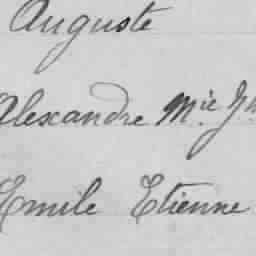 Auguste
Alexandre M.ie
Emile Etienne